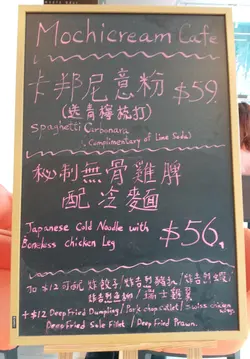 Mochicream Cafe
卡邦尼意粉 $59.
(送青檸梳打)
Spaghetti Carbonara
(Complimentary of Lime Soda)
秘制無骨雞髀
配冷麵
Japanese Cold Noodle with
Boneless chicken Leg $56.
加$12可配 炸餃子/炸吉烈豬扒/炸吉烈蝦/
炸吉烈魚柳/瑞士雞翼
+$12 Deep Fried Dumpling/Pork chop cutlet/Swiss chicken wings
Deep Fried Sole Fillet/Deep Fried Prawn.